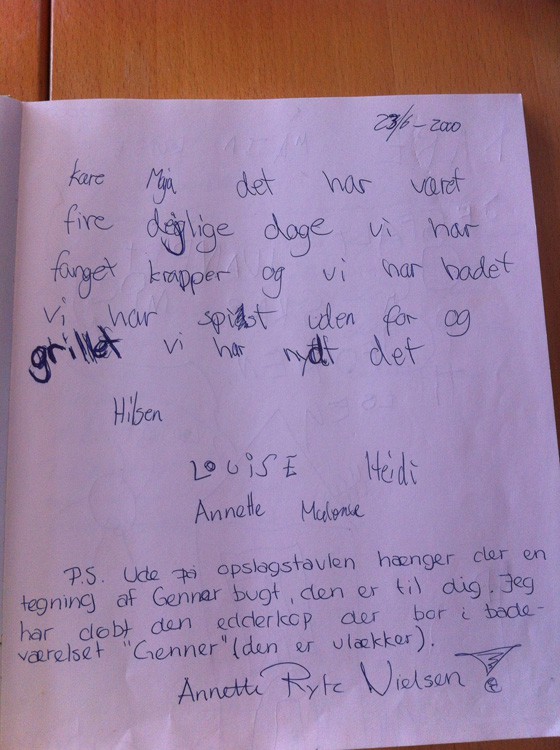 23/6-2000
kære Maja det har været
fire dejlige dage vi har
fanget krapper og vi har badet
vi har spist uden for og
grillet vi har nydt det
Hilsen
LOUiSE Heidi
Annette
P.S. Ude på opslagstavlen hænger der en
tegning af Genner bugt, den er til dig. Jeg
har døbt den edderkop der bor i bade-
værelset "Genner" (den er ulækker).
Annette Ryte Nielsen